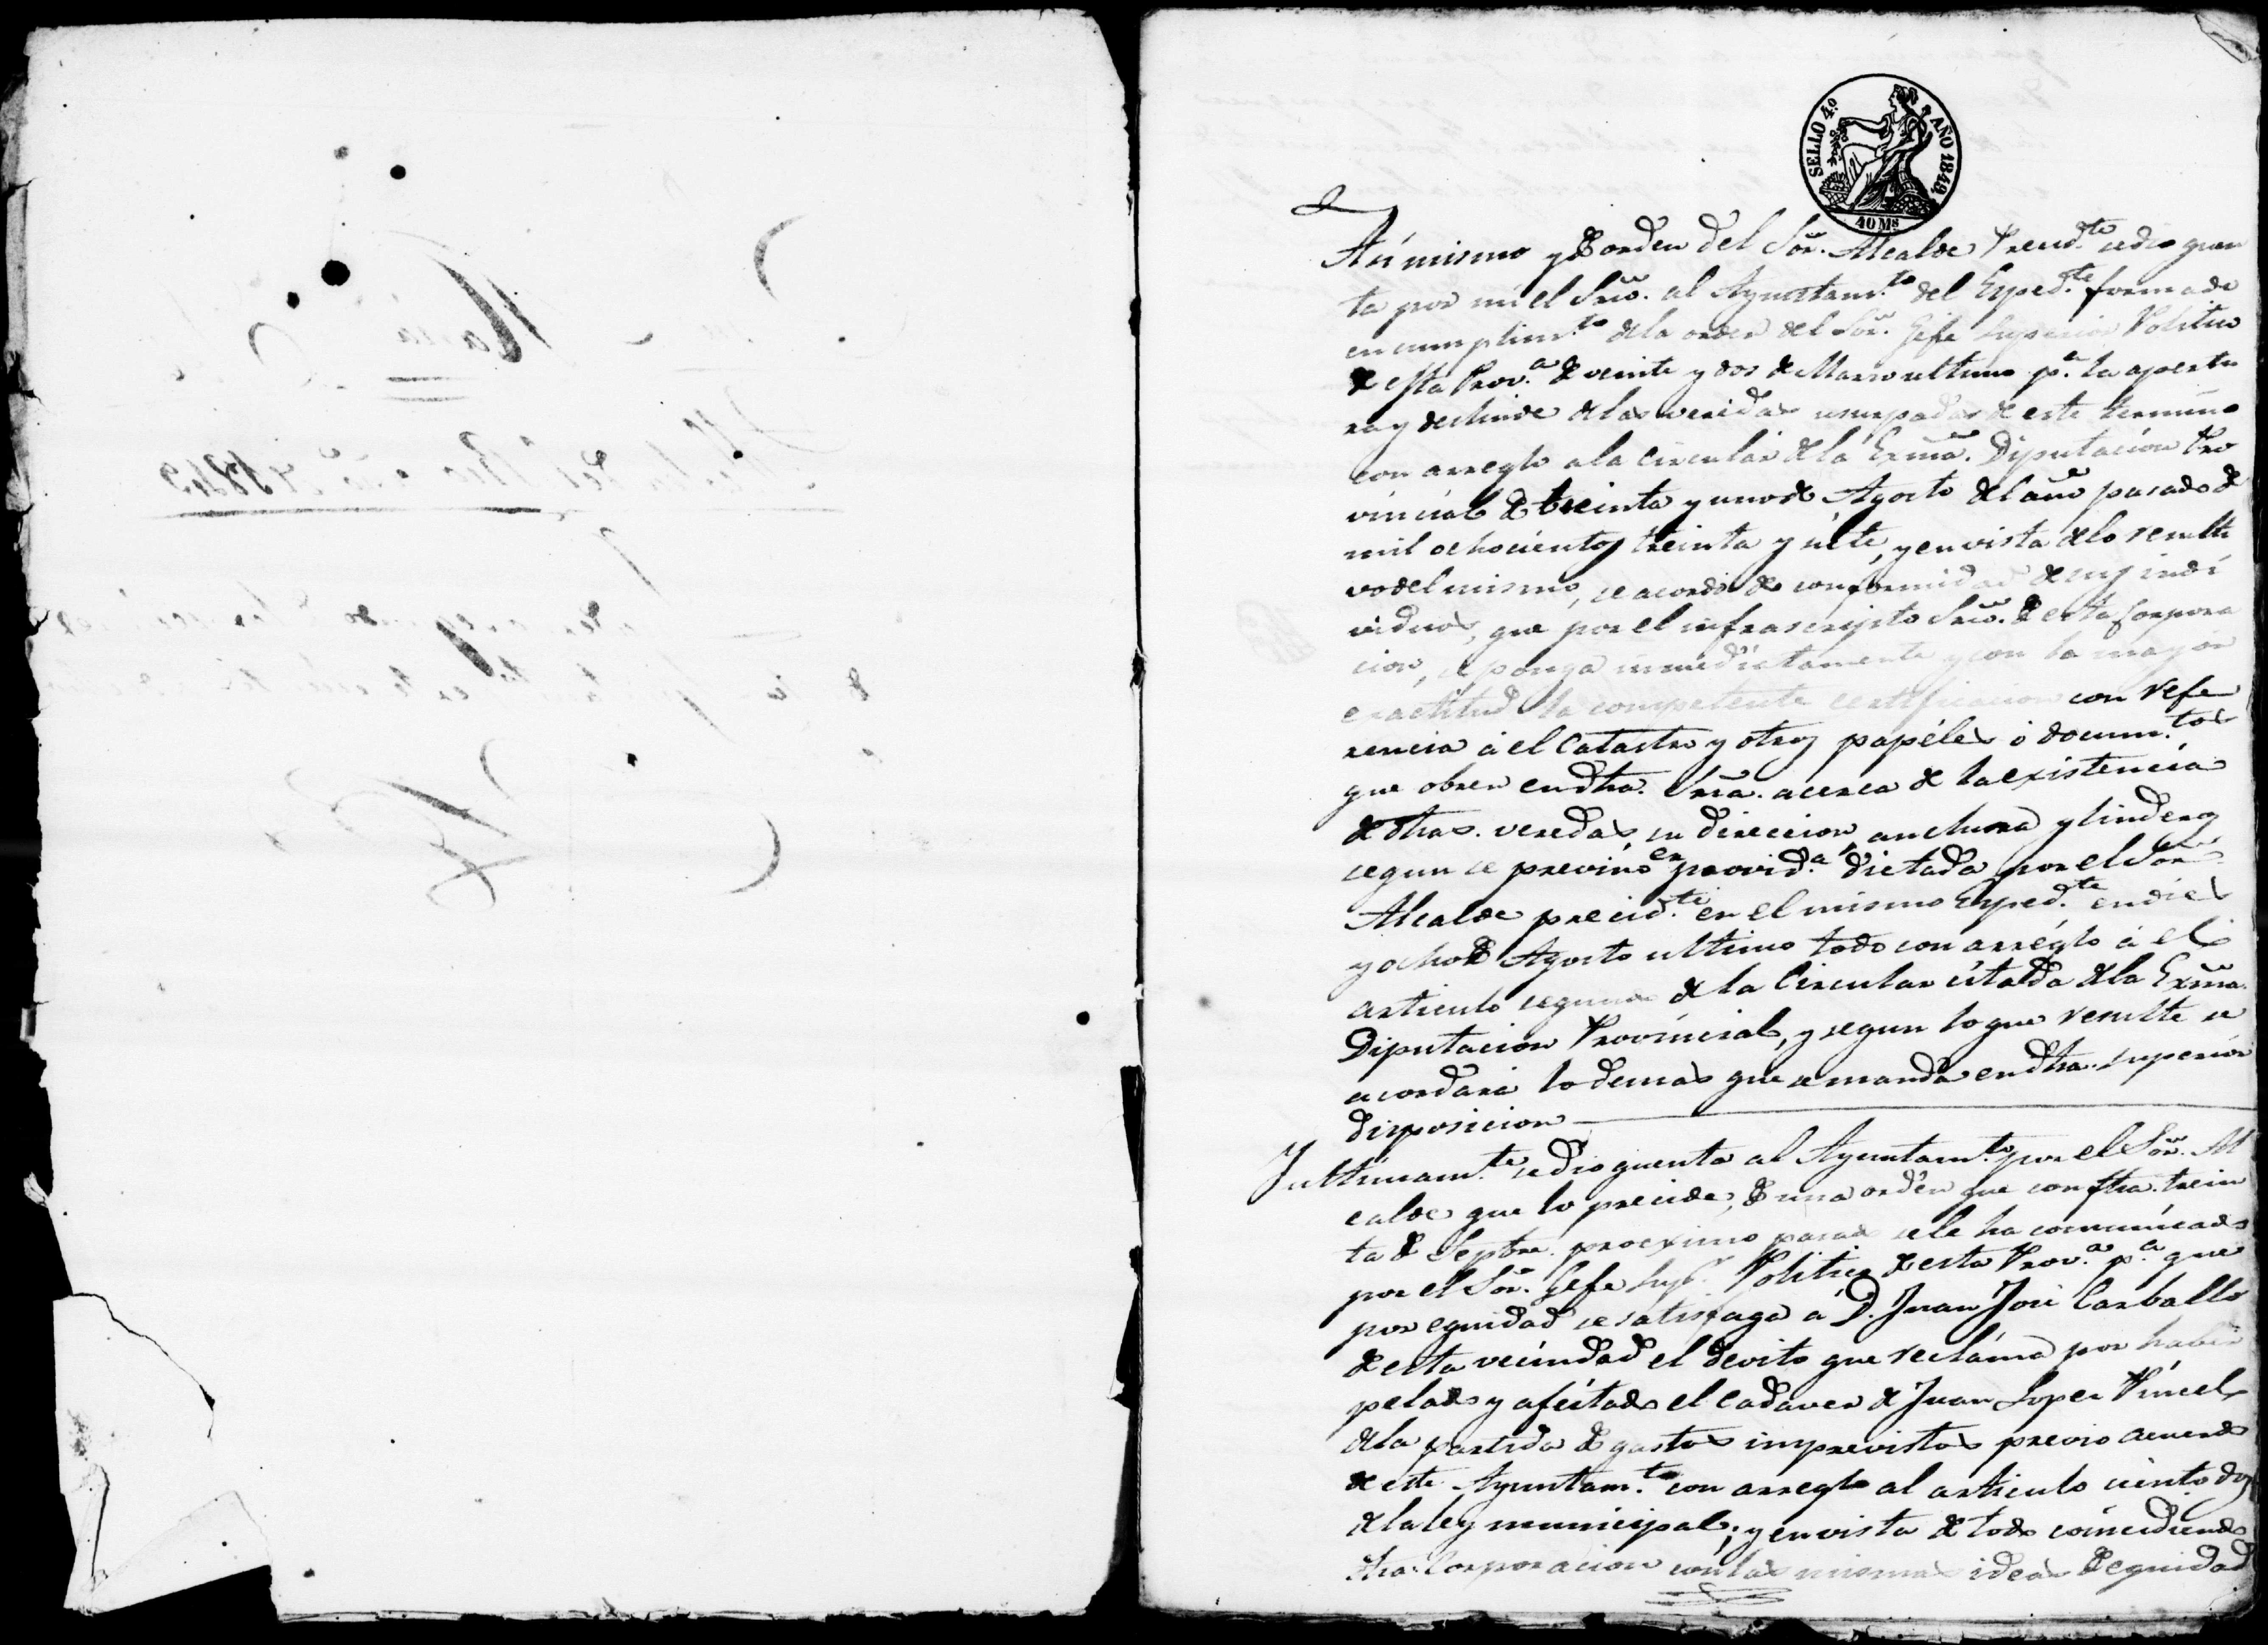 SELLO 4º. AÑO 1843.
40 Ms
Asi mismo y de orden del Sor. Alcalde Presid.te se dio quen
ta por mi el Srio. al Ayuntam.to del Exped.te formado
en cumplim.to de la orden del Sor. Gefe Superior Politico
de esta Prov.a de veinte y dos de Marzo ultimo p.a la apertu
ra y deslinde de las veredas usurpadas de este termino
con arreglo a la circular de la Exma. Diputacion Pro
vincial de treinta y uno de Agosto del año pasado de
mil ochocientos treinta y siete, y en vista de lo resulti
vo del mismo, se acordó de conformidad de sus indi
viduos, que por el infrascripto Srio. de esta Corpora
cion, se ponga inmediatamente y con la mayor
exactitud la competente certificacion con refe
rencia á el Catastro y otros papéles ó docum.tos
que obren en dha. Sria. acerca de la existencia
de dhas. veredas, su direccion, anchura y linderos
segun se previno en provid.a dictada por el Sor.
Alcalde precid.te en el mismo Exped.te en diez
y ocho de Agosto ultimo todo con arréglo á el
articulo segundo de la Circular citada de la Exma.
Diputacion Provincial, y segun lo que resulte se
acordará lo demas que se manda en dha. superior
disposicion
Y ultimam.te se dio quenta al Ayuntam.to por el Sor. Al
calde que lo precide, de una orden que con fha. trein
ta de Septbre. procximo pasado se le ha comunicado
por el Sor. Gefe Sup.r Politico de esta Prov.a p.a que
por equidad se satisfaga á D. Juan José Carballo
de esta vecindad el devito que reclama por haber
pelado y afeitado el cadaver de Juan Lopez Pincel
de la partida de gastos imprevistos previo acuerdo
de este Ayuntam.to con arreglo al articulo ciento dos
de la ley municipal; y en vista de todo coincidiendo
dha. Corporacion con las mismas ideas de equidad